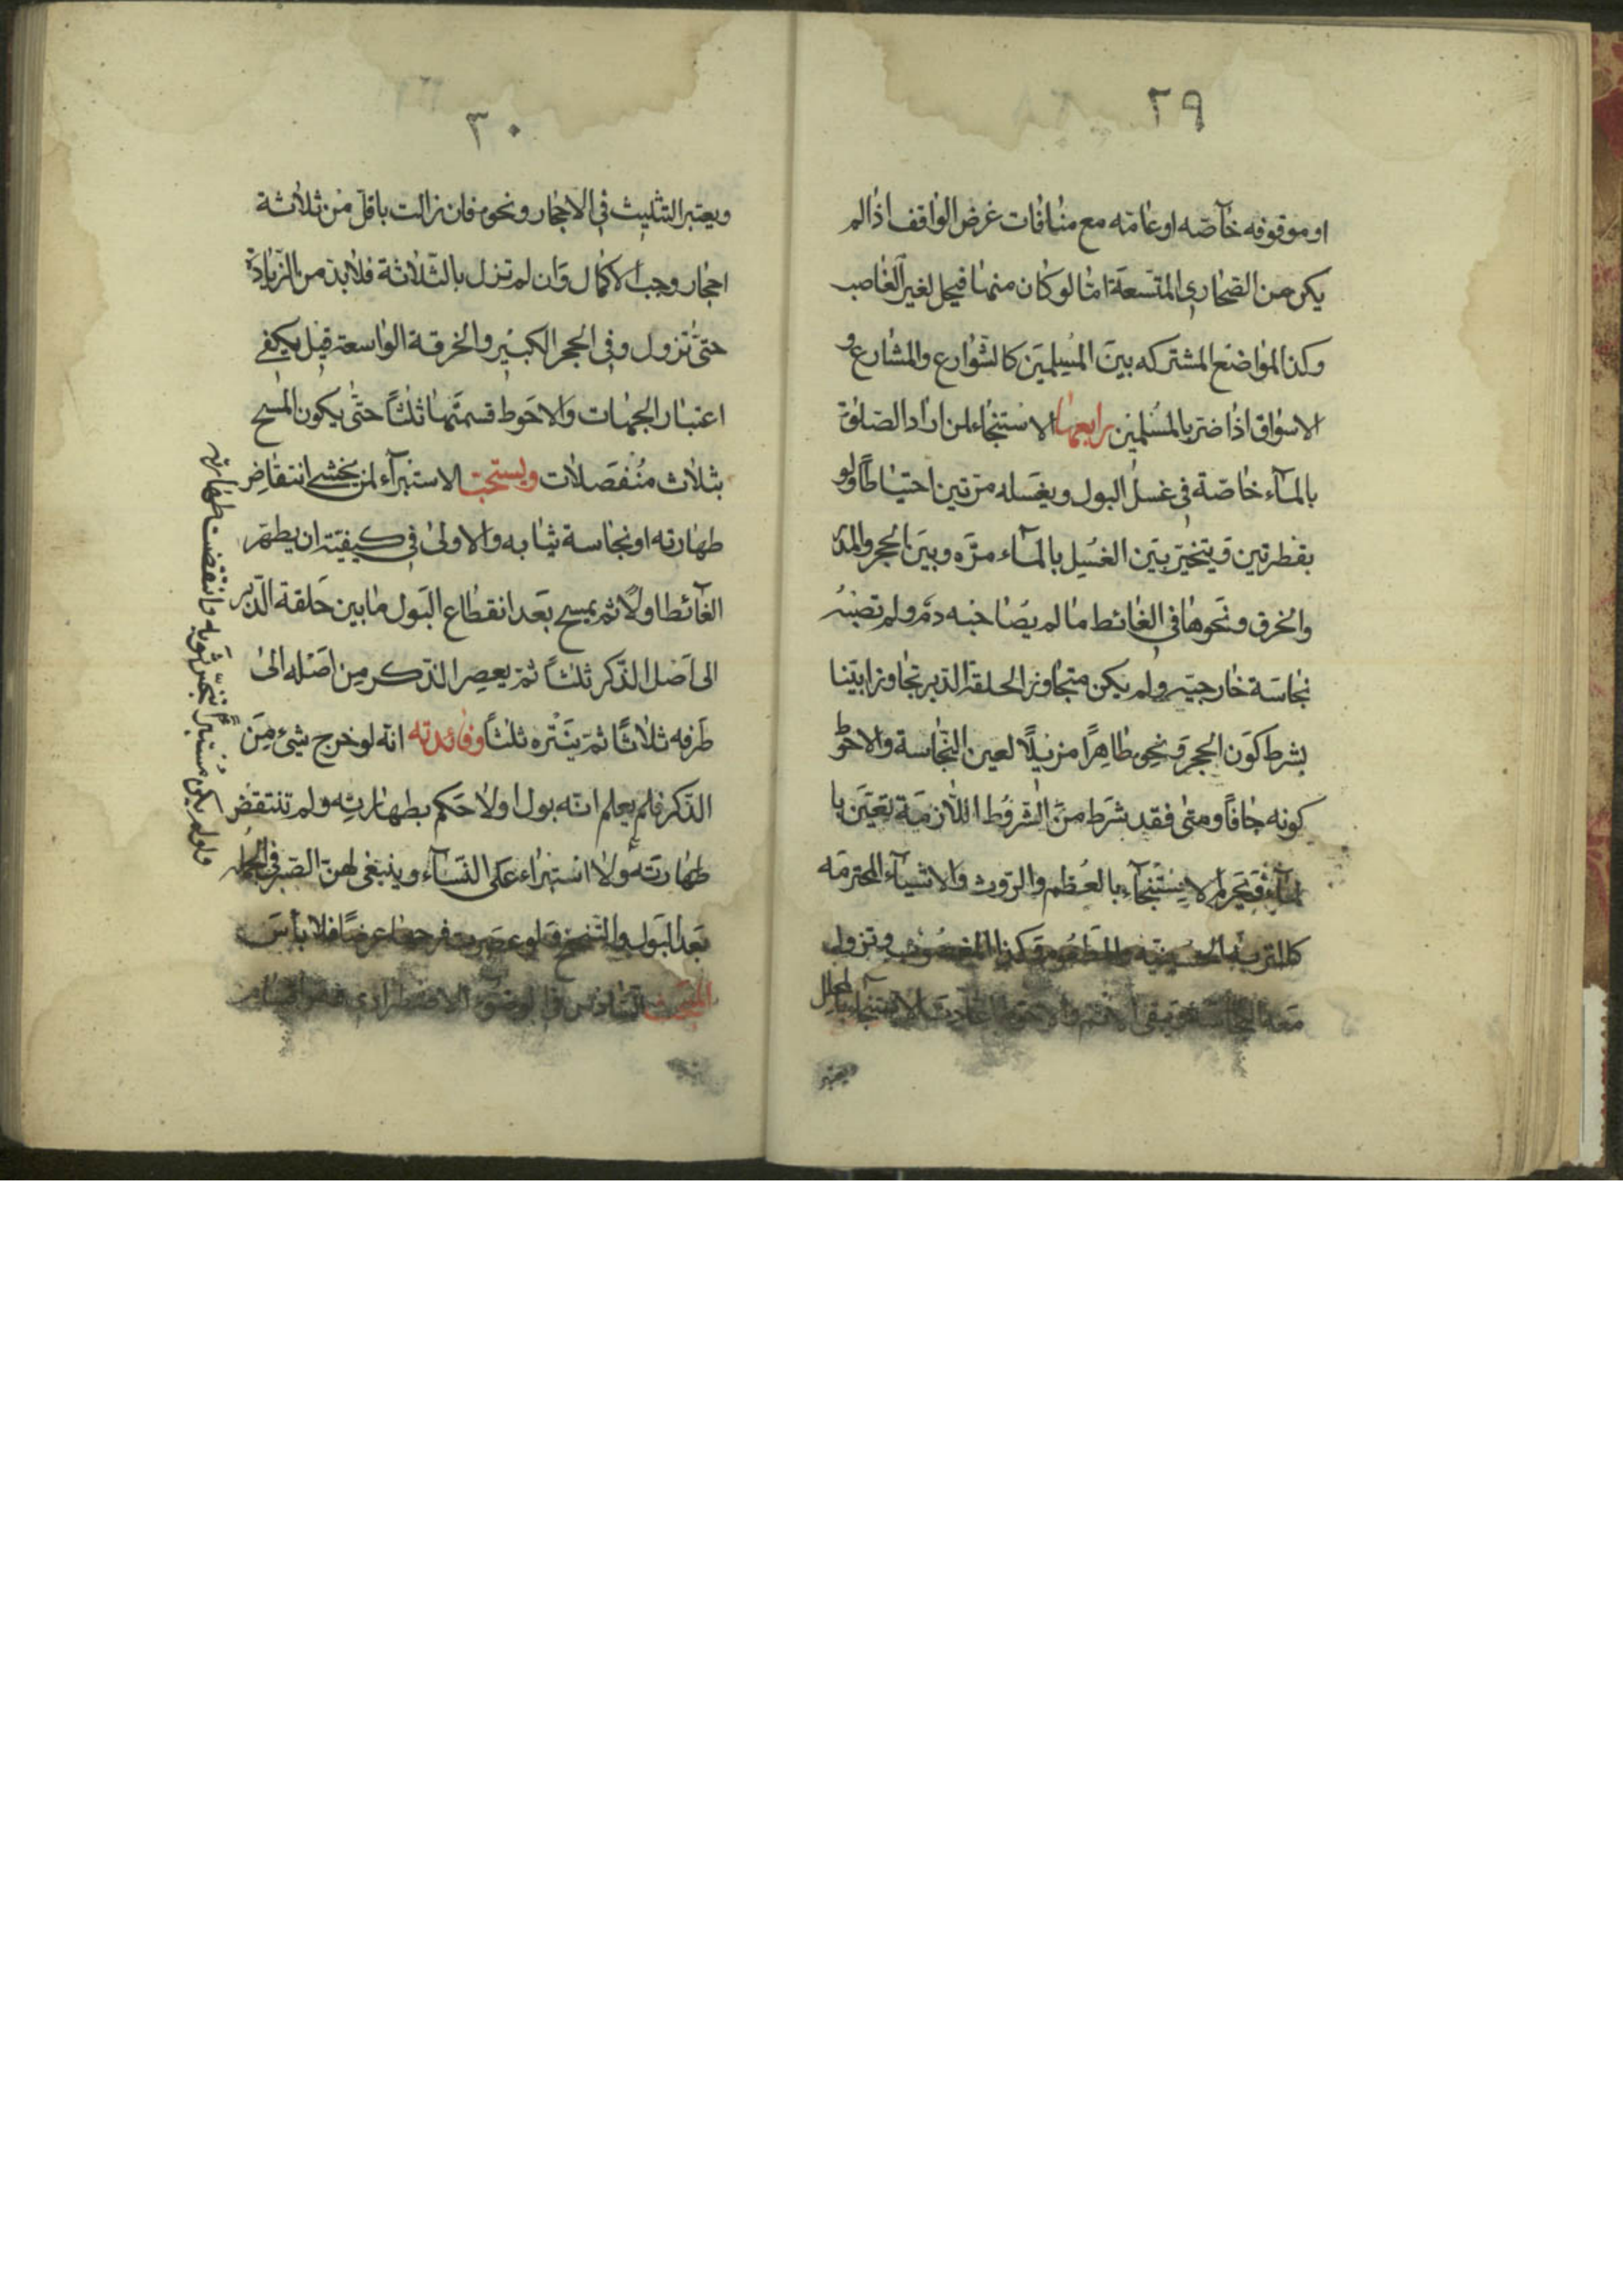 ٢٩
او موقوفه خآصّه او عامّه مع منافات غرض الواقف اذا لم
يكن من الصّحاري المتّسعة امّا لو كان منها فيحل لغير الغاصب
وكذا المواضع المشتركه بين المسلمين كالشّوارع والمشارع و
الاسواق اذا ضرّ بالمسلمين رابعها الاستنجاء لمن اراد الصلوة
بالمآء خاصّة في غسل البول ويغسله مرّتين احتياطاً ولو
بقطرتين ويتخيّر بين الغسل بالمآء مرّه وبين الحجر والمدر
والخرق ونحوها في الغائط ما لم يصاحبه دم ولم تصبه
نجاسة خارجيّه ولم يكن متجاوز الحلقة الدّبر تجاوزا بيّنا
بشرط كون الحجر ونحوه طاهراً مزيلاً لعين النّجاسة والاحوط
كونه جافاً ومتى فقد شرط من الشّروط اللّازمة تعيّن با
لمآء ويحرم الاستنجآء بالعظم والرّوث والاشيآء المحترمه
كالتربة الحسينيّه والمطعوم وكذا المغصوب وتزول
معه النجاسة ويبقى الاثم والاحوط اعادة الاستنجاء بالمحلل
ويعتبر
٣٠
ويعتبر التثليث في الاحجار ونحوه فان زالت باقلّ من ثلاثة
احجار وجب الاكمال وان لم تزل بالثّلاثة فلابدّ من الزّيادة
حتىّ تزول وفي الحجر الكبير والخرقة الواسعة قيل يكفي
اعتبار الجهات والاحوط قسمتها ثلثاً حتّى يكون المسح
بثلاث منفصلات ويستحبّ الاستبرآء لمن يخشى انتقاض
طهارته او نجاسة ثيابه والاولى في كيفيّته ان يطهّر
الغآئط اولاً ثم يمسح بعد انقطاع البول ما بين حلقة الدّبر
الى اصل الذّكر ثلثاً ثمّ يعصر الذّكر من اصله الى
طرفه ثلاثاً ثمّ ينتره ثلثاً وفائدته انّه لو خرج شيء من
الذّكر فلم يعلم انّه بول اولا حكم بطهارته ولم تنتقض
طهارته ولا استبراء على النّسآء وينبغي لهنّ الصّبر في الجمله
بعد البول والتّنحنح ولو عصرت فرجها عرضاً فلا بأس
المبحث السّادس في الوضوء الاضطراري وهو اقسام
ولو لم يكن مستبرأ تنجّس ثوبه وانتقضت طهارته